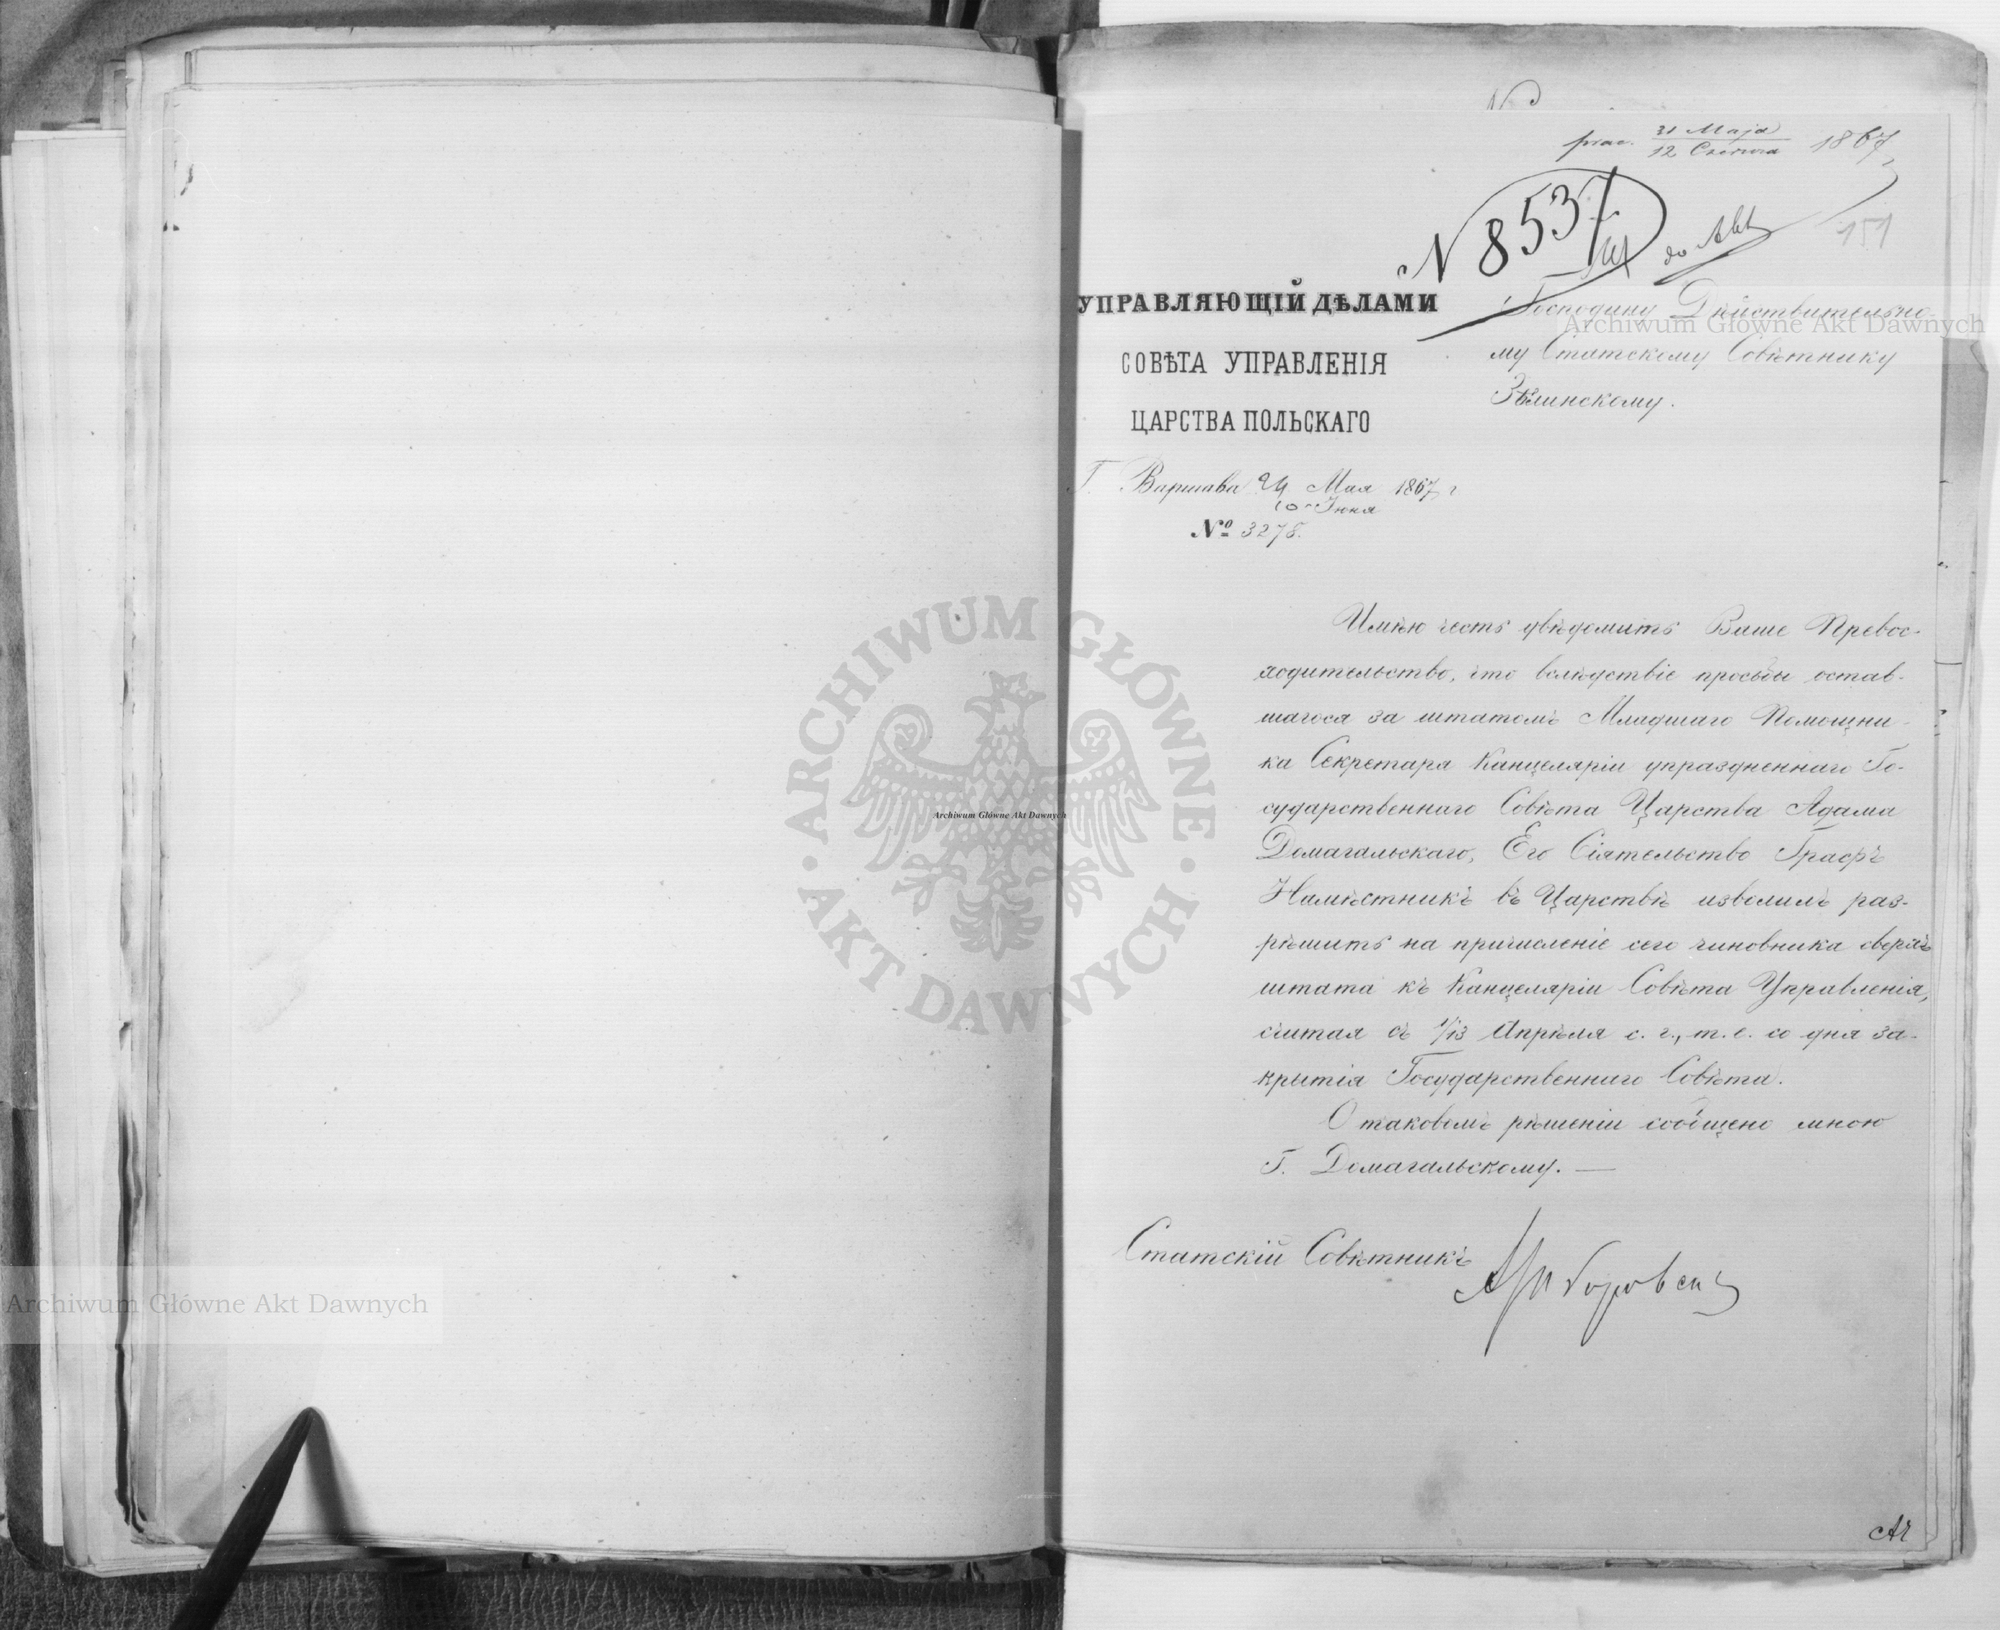 prae. 31 Maja 1867
12 Czerwca
N 8537
do Akt
151
УПРАВЛЯЮЩІЙ ДѢЛАМИ
СОВѢТА УПРАВЛЕНІЯ
ЦАРСТВА ПОЛЬСКАГО
Г. Варшава 29 Мая 1867 г
10 Іюня
№ 3278.
Господину Дѣйствительно-
му Статскому Совѣтнику
Зѣлинскому.
Имѣю честь увѣдомить Ваше Превос-
ходительство, что вслѣдствіе просьбы остав-
шагося за штатомъ Младшаго Помощни-
ка Секретаря Канцеляріи упраздненнаго Го-
сударственнаго Совѣта Царства Адама
Домагальскаго, Его Сіятельство Графъ
Намѣстникъ въ Царствѣ изволилъ раз-
рѣшить на причисленіе сего чиновника сверхъ
штата къ Канцеляріи Совѣта Управленія,
считая съ 1/13 Апрѣля с. г., т. е. со дня за-
крытія Государственнаго Совѣта.
О таковомъ рѣшеніи сообщено мною
Г. Домагальскому. —
Статскій Совѣтникъ
Archiwum Główne Akt Dawnych
Archiwum Główne Akt Dawnych
Archiwum Główne Akt Dawnych
ARCHIWUM GŁÓWNE · AKT DAWNYCH ·